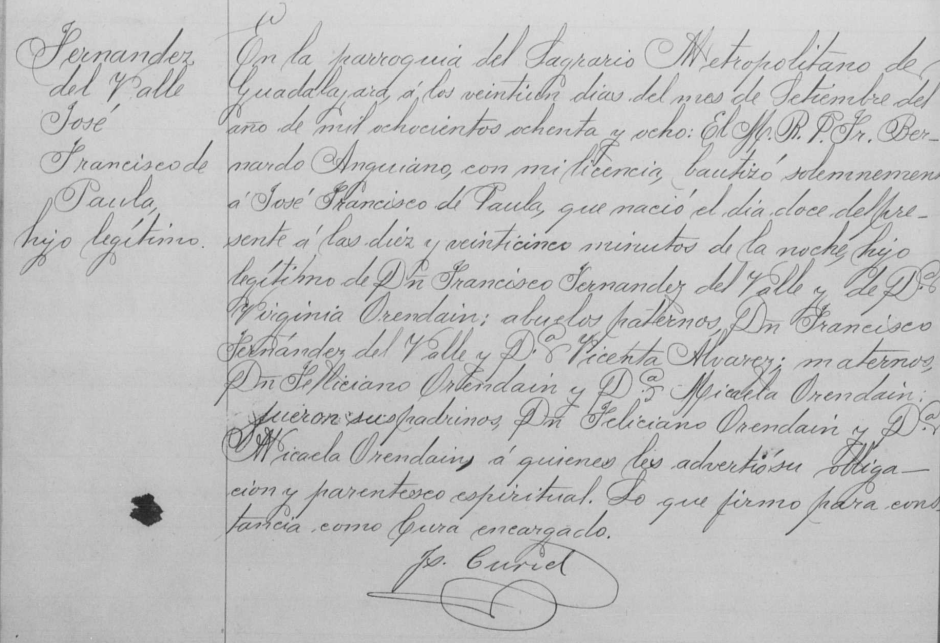 Fernandez
del Valle
José
Francisco de
Paula,
hijo legítimo.
En la parroquia del Sagrario Metropolitano de
Guadalajara, á los veintiun dias del mes de Setiembre del
año de mil ochocientos ochenta y ocho: El M. R. P. Fr. Ber-
nardo Anguiano, con mi licencia, bautizó solemnemen
á José Francisco de Paula, que nació el dia doce del pre-
sente á las diez y veinticinco minutos de la noche, hijo
legítimo de Dn Francisco Fernandez del Valle y de D.ª
Virginia Orendain; abuelos paternos, Dn Francisco
Fernández del Valle y D.ª Vicenta Alvarez; maternos,
Dn Feliciano Orendain y D.ª Micaela Orendain.
fueron sus padrinos, Dn Feliciano Orendain y D.ª
Micaela Orendain, á quienes les advertió su obliga-
cion y parentesco espiritual. Lo que firmo para cons
tancia como Cura encargado.
Curiel